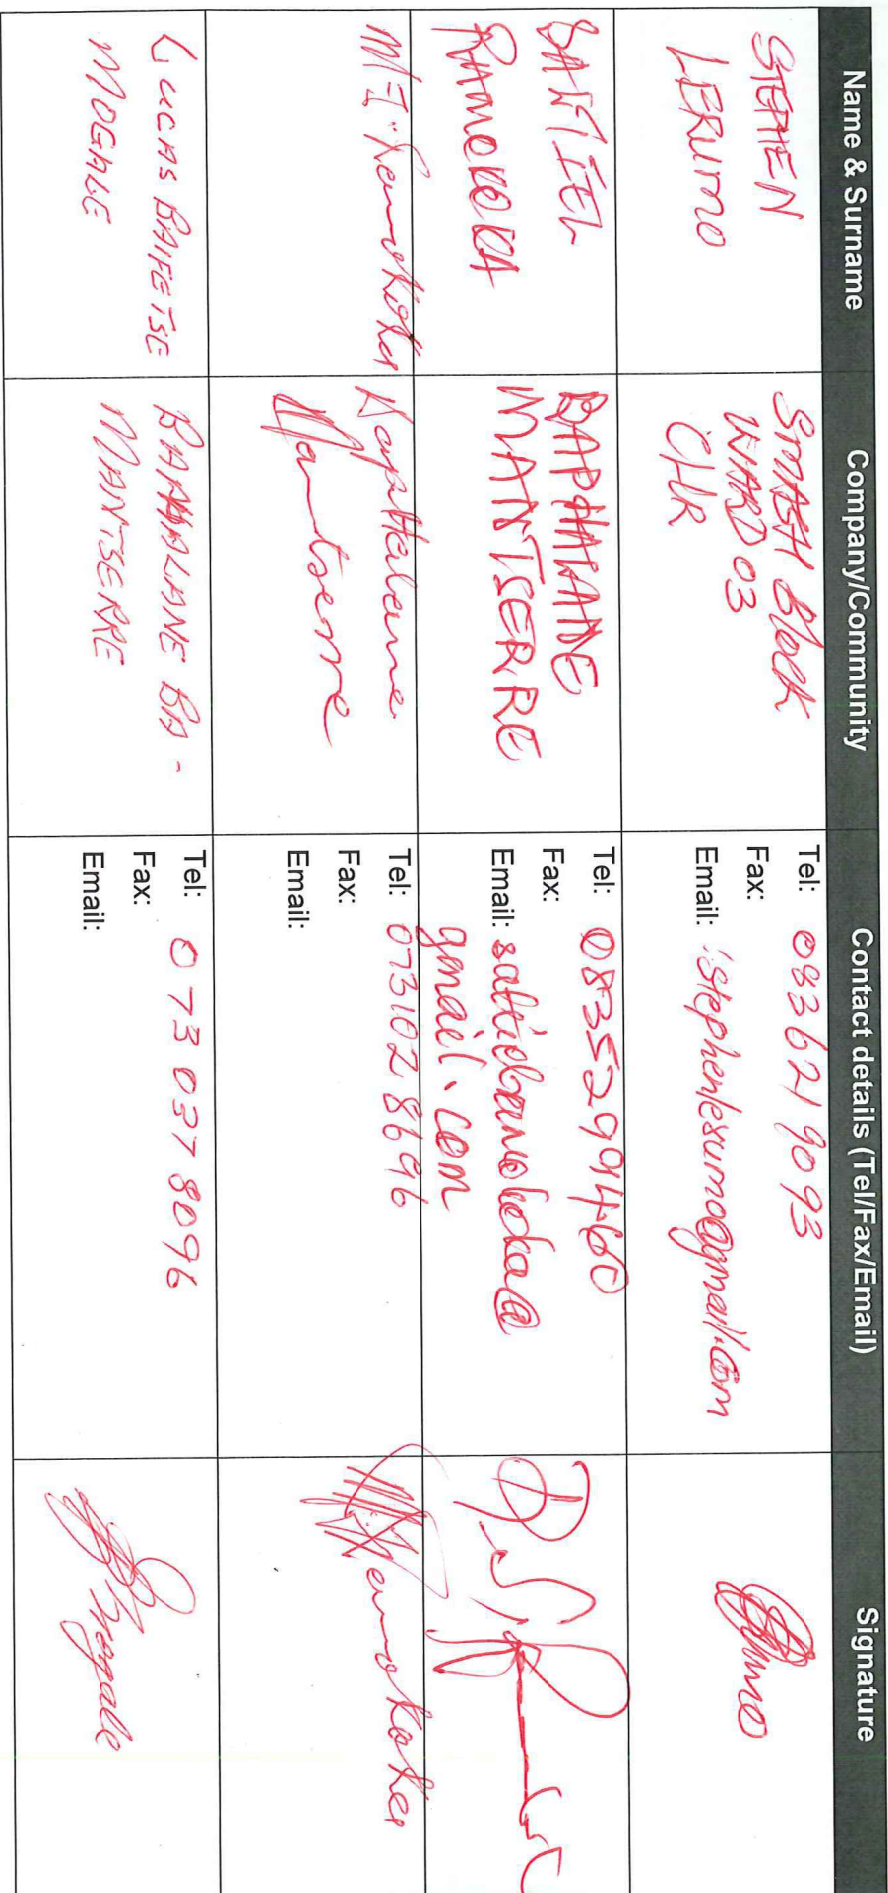 Name & Surname Company/Community Contact details (Tel/Fax/Email) Signature
STEPHEN
LERUMO
SMASH Block
WARD 03
CLLR
Tel: 083 621 9093
Fax:
Email: stephenlerumo@gmail.com
RAMOKOKA
BAPHALANE
MANTSERRE
Tel: 0835299460
Fax:
Email:
gmail.com
M-I Ramokoka
Baphalane
Mantserre
Tel: 073102 8696
Fax:
Email:
Ramokoka
LUCAS BAFETSE
MOGALE
BAPHALANE BA -
MANTSERRE
Tel: 073 037 8096
Fax:
Email:
Mogale